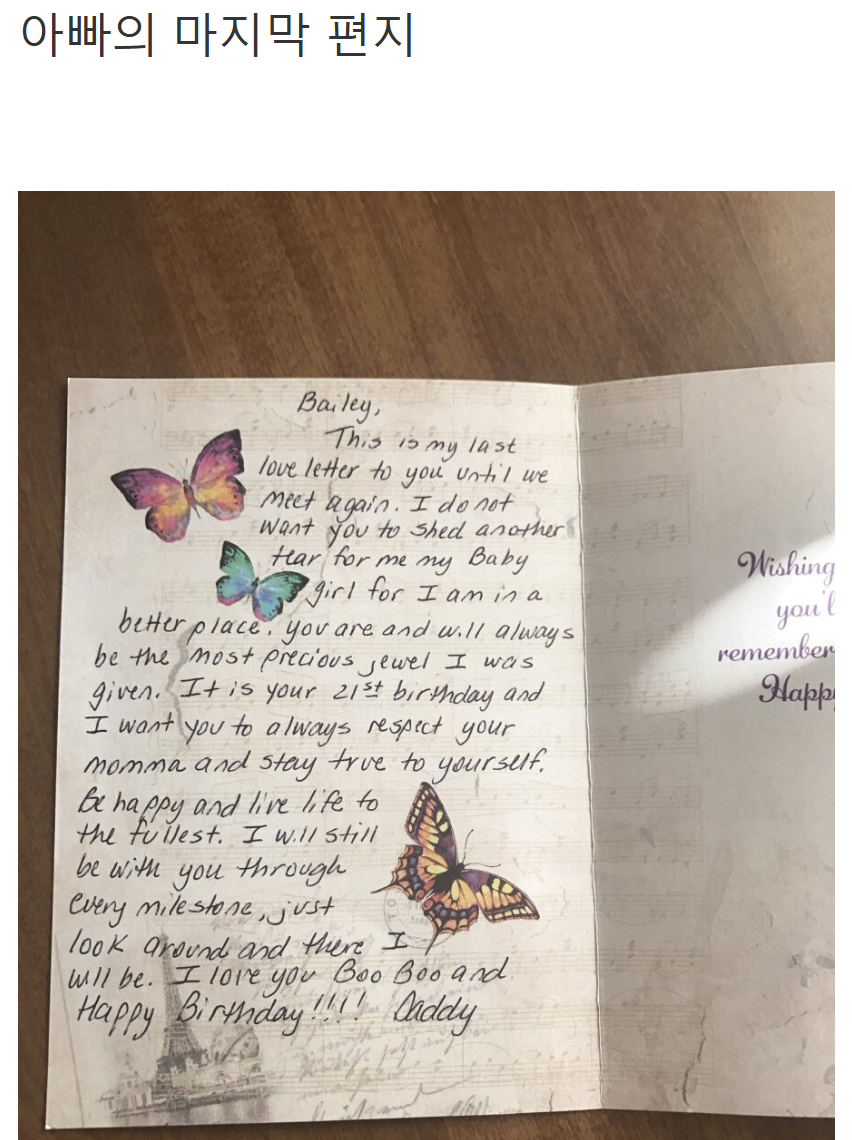 아빠의 마지막 편지
Bailey,
This is my last
love letter to you until we
meet again. I do not
want you to shed another
tear for me my Baby
girl for I am in a
better place. you are and will always
be the most precious jewel I was
given. It is your 21st birthday and
I want you to always respect your
momma and stay true to yourself.
Be happy and live life to
the fullest. I will still
be with you through
every milestone, just
look around and there I
will be. I love you Boo Boo and
Happy Birthday!!!! Daddy
Wishing
you'l
remember
Happy